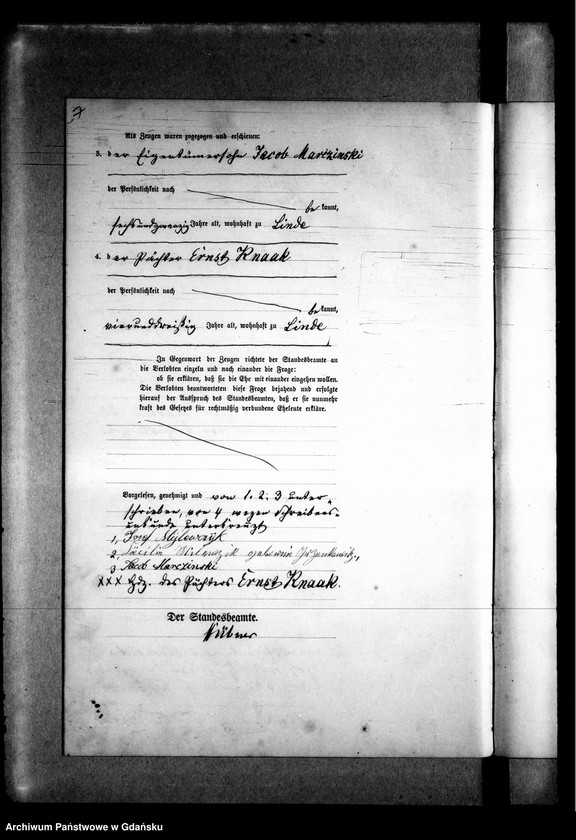 Als Zeugen waren zugezogen und erschienen:
3. der Eigentümersohn Jacob Marczinski
der Persönlichkeit nach
bekannt,
sechsundzwanzig Jahre alt, wohnhaft zu Linde
4. der Pächter Ernst Knaak
der Persönlichkeit nach
bekannt,
vierunddreißig Jahre alt, wohnhaft zu Linde
In Gegenwart der Zeugen richtete der Standesbeamte an
die Verlobten einzeln und nach einander die Frage:
ob sie erklären, daß sie die Ehe mit einander eingehen wollen.
Die Verlobten beantworteten diese Frage bejahend und erfolgte
hierauf der Ausspruch des Standesbeamten, daß er sie nunmehr
kraft des Gesetzes für rechtmäßig verbundene Eheleute erkläre.
Vorgelesen, genehmigt und von 1. 2. 3 unter-
schrieben, von 4 wegen Schreibens-
unkunde unterkreuzt
1,
2,
3 Jacob Marczinski
XXX Hdz. des Pächters Ernst Knaak.
Der Standesbeamte.
Hübner
Archiwum Państwowe w Gdańsku